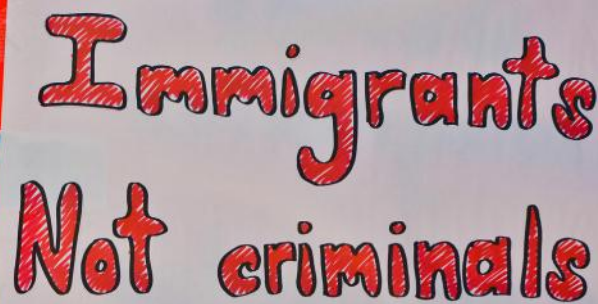 Immigrants
Not criminals